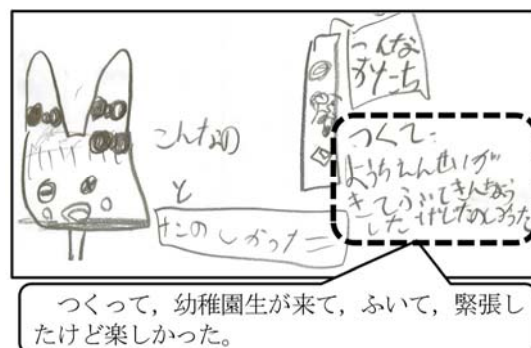 こんな
かたーち
こんなの
と
たのしかったニ
つくて
ようちえんせいが
きてふいてきんちょう
したけどたのしかった
つくって，幼稚園生が来て，ふいて，緊張し
たけど楽しかった。